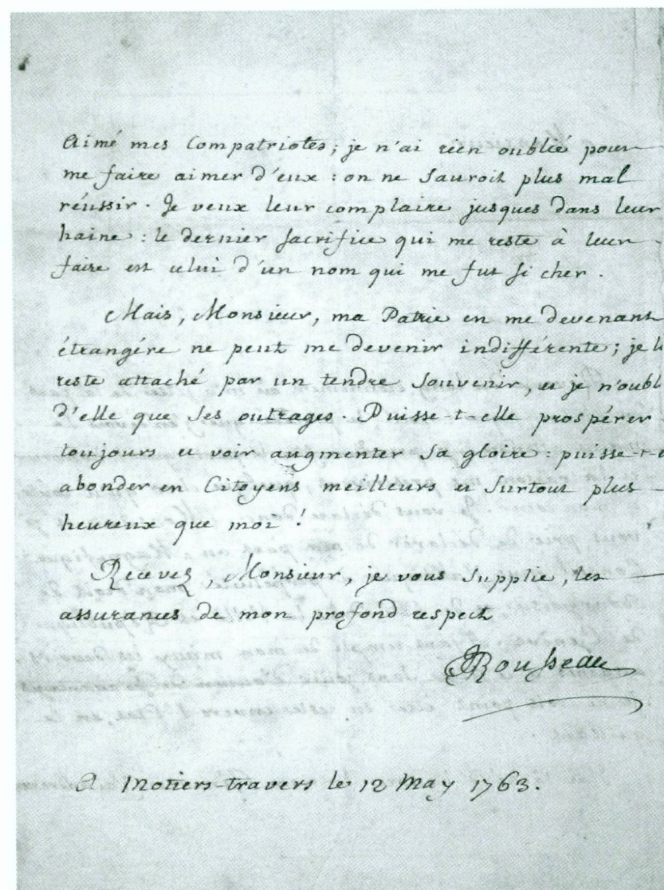 Aimé mes Compatriotes; je n'ai rien oublié pour
me faire aimer d'eux: on ne sauroit plus mal
réussir. Je veux leur complaire jusques dans leur
haine: le dernier sacrifice qui me reste à leur
faire est celui d'un nom qui me fut si cher.
Mais, Monsieur, ma Patrie en me devenant
étrangére ne peut me devenir indifférente; je l
reste attaché par un tendre souvenir, et je n'oubl
d'elle que ses outrages. Puisse-t-elle prospérer
toujours et voir augmenter sa gloire: puisse-t-e
abonder en Citoyens meilleurs et surtout plus
heureux que moi!
Recevez, Monsieur, je vous supplie, les
assurances de mon profond respect
JJRousseau
A Motiers-travers le 12 May 1763.